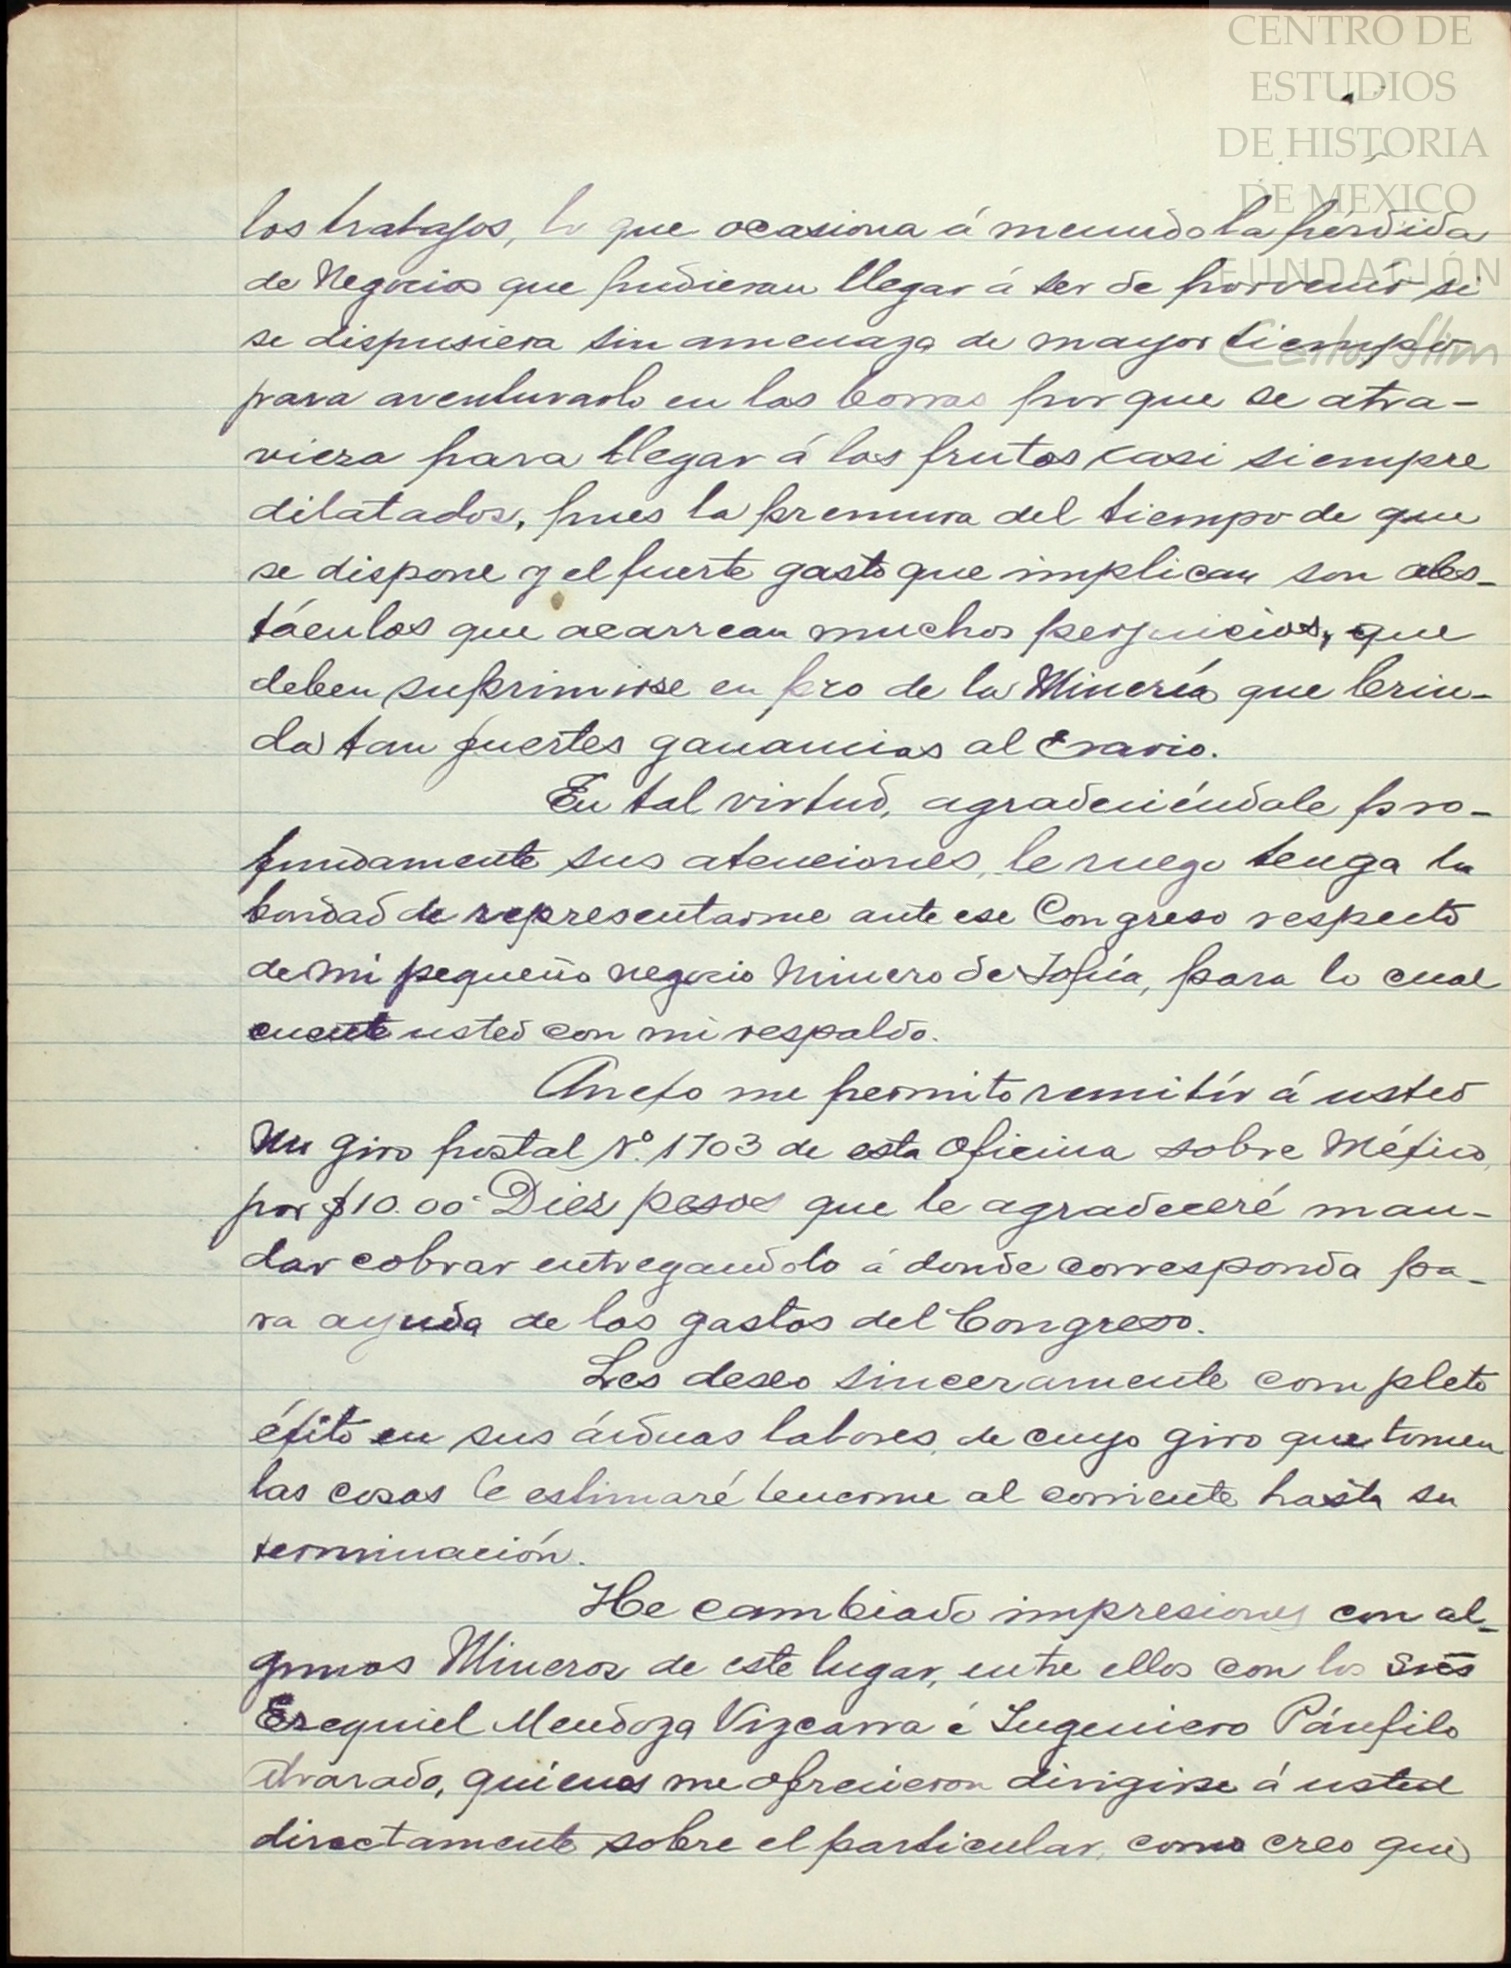 CENTRO DE
ESTUDIOS
DE HISTORIA
DE MEXICO
FUNDACIÓN
Carlos Slim
los trabajos, lo que ocasiona á menudo la pérdida
de Negocios que pudieran llegar á ser de porvenir si
se dispusiera sin amenaza de mayor tiempo
para aventurarlo en las borras porque se atra-
vieza para llegar á los frutos casi siempre
dilatados, pues la premura del tiempo de que
se dispone y el fuerte gasto que implican son obs-
táculos que acarrean muchos perjuicios, que
deben suprimirse en pro de la Minería que brin-
da tan fuertes ganancias al Erario.
En tal virtud, agradeciéndole pro-
fundamente sus atenciones, le ruego tenga la
bondad de representarme ante ese Congreso respecto
de mi pequeño negocio Minero de Sofía, para lo cual
cuente usted con mi respaldo.
Anexo me permito remitír á usted
Un giro postal Nº. 1703 de esta Oficina sobre México,
por $10.00 Diez pesos que le agradeceré man-
dar cobrar entregandolo á donde corresponda pa-
ra ayuda de los gastos del Congreso.
Les deseo sinceramente completo
éxito en sus árduas labores, de cuyo giro que tomen
las cosas le estimaré tenerme al corriente hasta su
terminación.
He cambiado impresiones con al-
gunos Mineros de este lugar, entre ellos con los Sres
Ezequiel Mendoza Vizcarra é Ingeniero Pánfilo
Alvarado, quienes me ofrecieron dirigirse á usted
directamente sobre el particular, como creo que